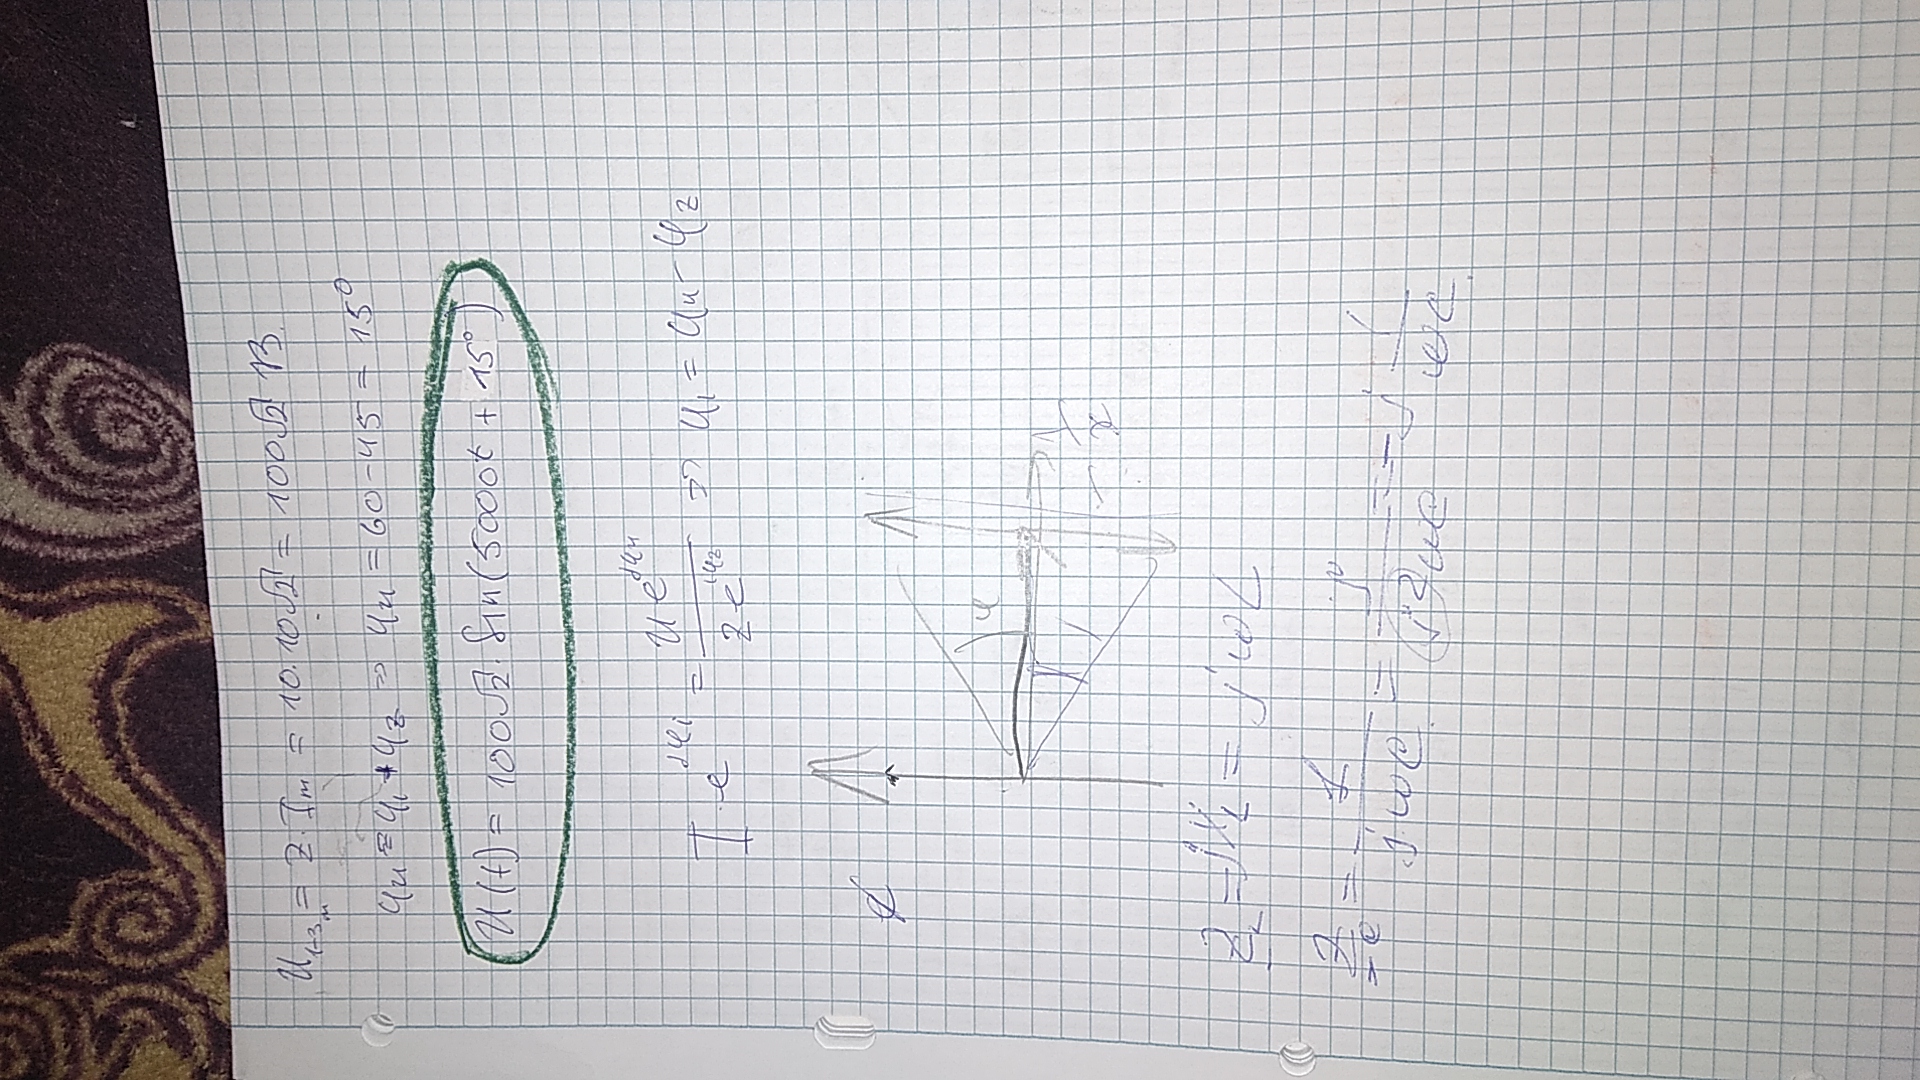 U₁₋₃ₘ = Z·Iₘ = 10·10√2 = 100√2 B.
φu = φi + φz => φu = 60-45 = 15°
U(t) = 100√2·sin(5000t + 15°)
I·e^jφi = U e^jφu / Z e^jφz => φi = φu - φz
φ
Z_L = jX_L = jωL
Z_C = 1/jωC = j/j²ωC = -j 1/ωC